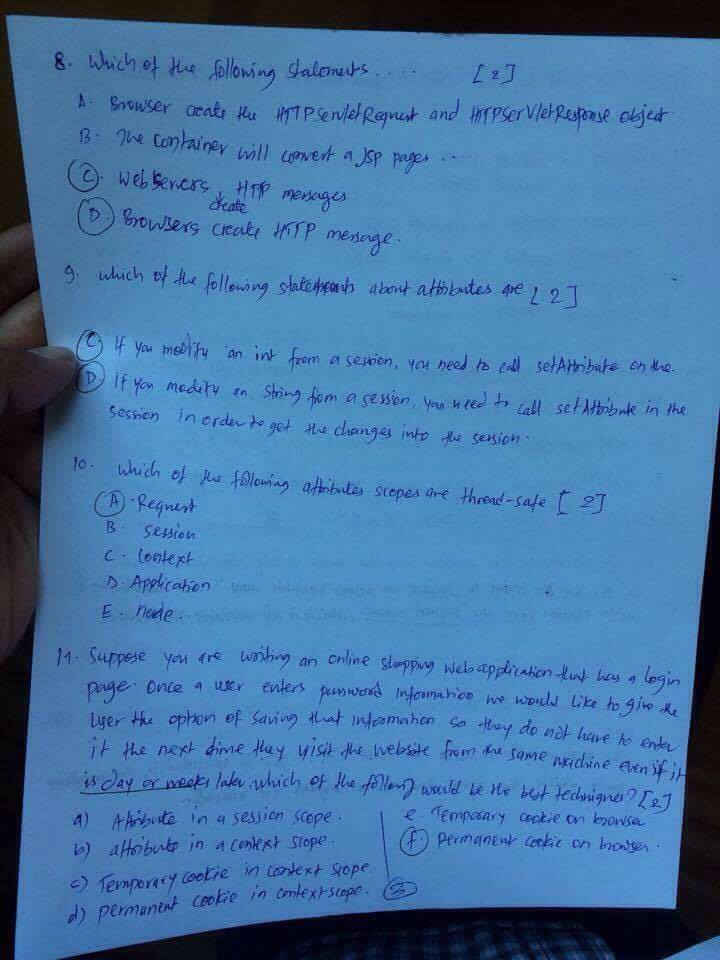 8. Which of the following statements .... [2]
A. Browser create the HTTPServletRequest and HTTPSerVletResponse object
B. The container will convert a JSP pages ....
C. Web servers create HTTP messages
D. Browsers create HTTP message.
9. which of the following statements about attributes are [2]
C. If you modify an int from a session, you need to call setAttribute on the.
D. If you modify an string from a session, you need to call setAttribute in the
session in order to get the changes into the session.
10. which of the following attributes scopes are thread-safe [2]
A. Request
B. session
C. Context
D. Application
E. node.
11. Suppose you are writing an online shopping web application that has a login
page. Once a user enters password information we would like to give the
user the option of saving that information so they do not have to enter
it the next time they visit the website from the same machine even if it
is day or weeks later. which of the following would be the best technique? [2]
a) Attribute in a session scope.
b) attribute in a context slope.
c) Temporary cookie in context scope
d) permanent cookie in context scope.
e. Temporary cookie on browser
f) permanent cookie on browser.